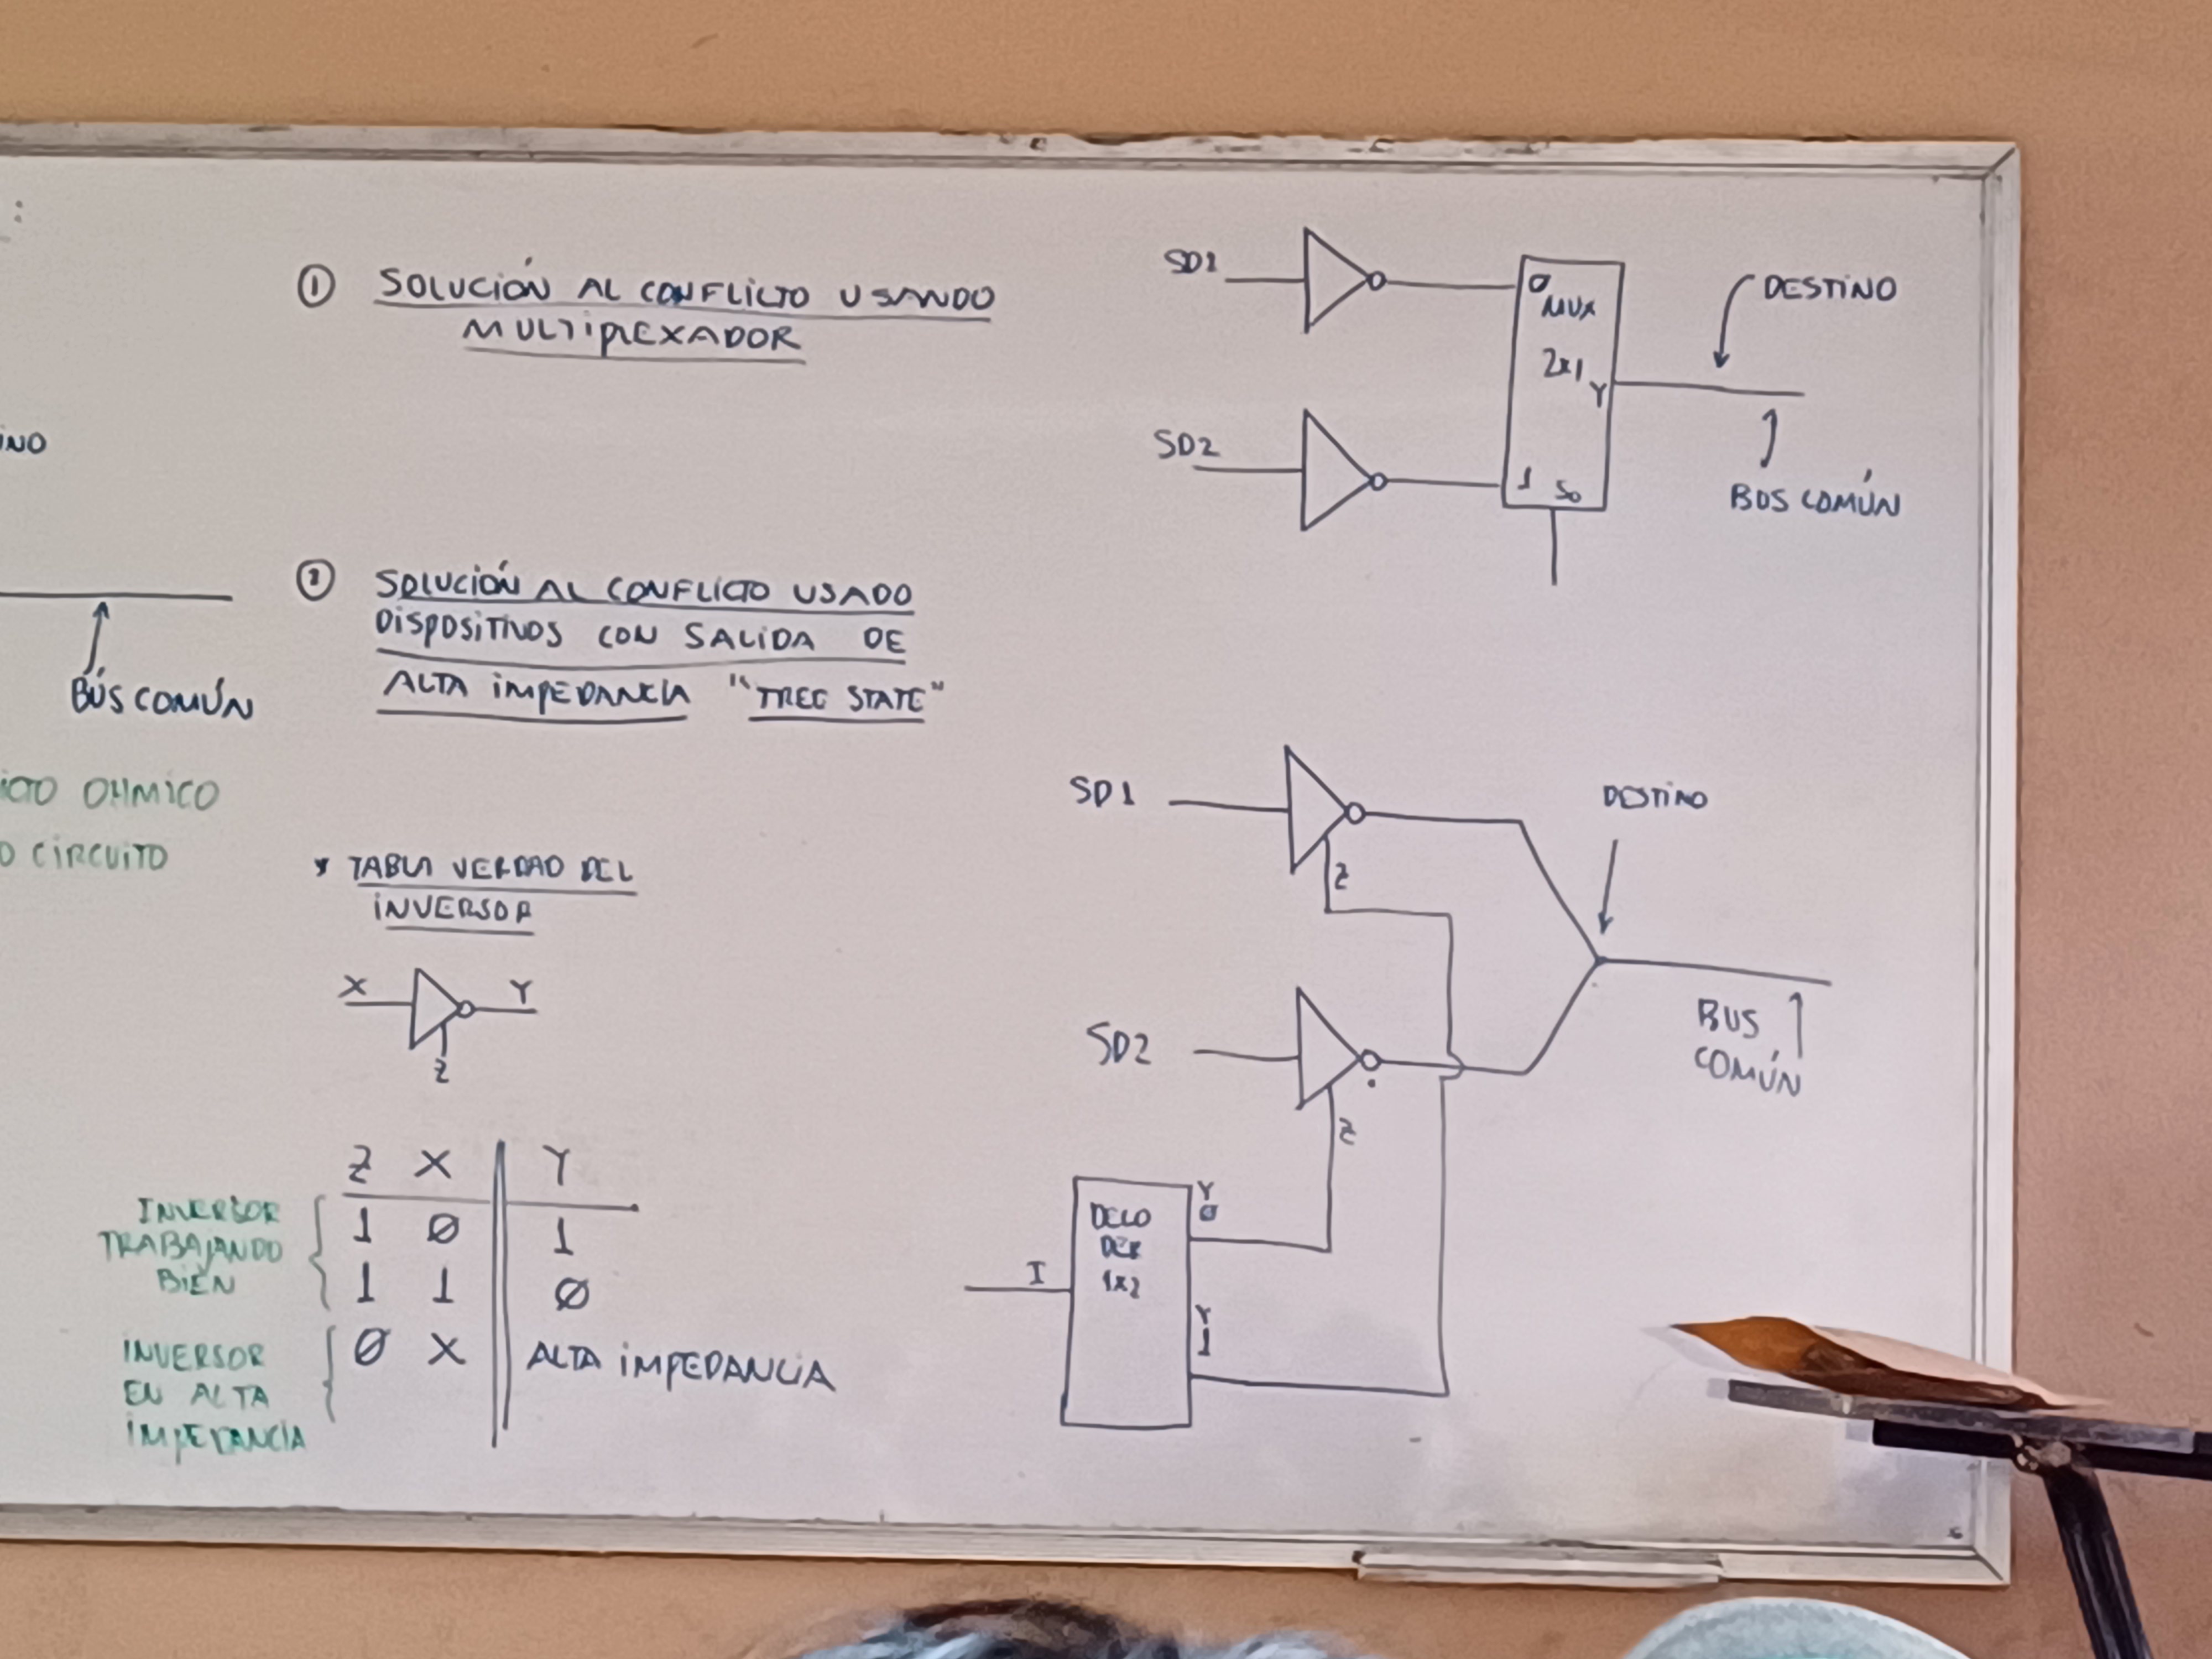 :
INO
BÚS COMÚN
OHMICO
CIRCUITO
① SOLUCIÓN AL CONFLICTO USANDO
MULTIPLEXADOR
SD1
SD2
0
MUX
2x1
Y
1 S0
DESTINO
BUS COMÚN
② SOLUCIÓN AL CONFLICTO USADO
DISPOSITIVOS CON SALIDA DE
ALTA IMPEDANCIA "TREE STATE"
* TABLA VERDAD DEL
INVERSOR
X Y
Z
Z X Y
1 Ø 1
1 1 Ø
Ø X ALTA IMPEDANCIA
INVERSOR
TRABAJANDO
BIEN
INVERSOR
EN ALTA
IMPEDANCIA
SD1
Z
SD2
Z
DESTINO
BUS
COMÚN
I
DECO
DER
1x2
Y
0
Y
1